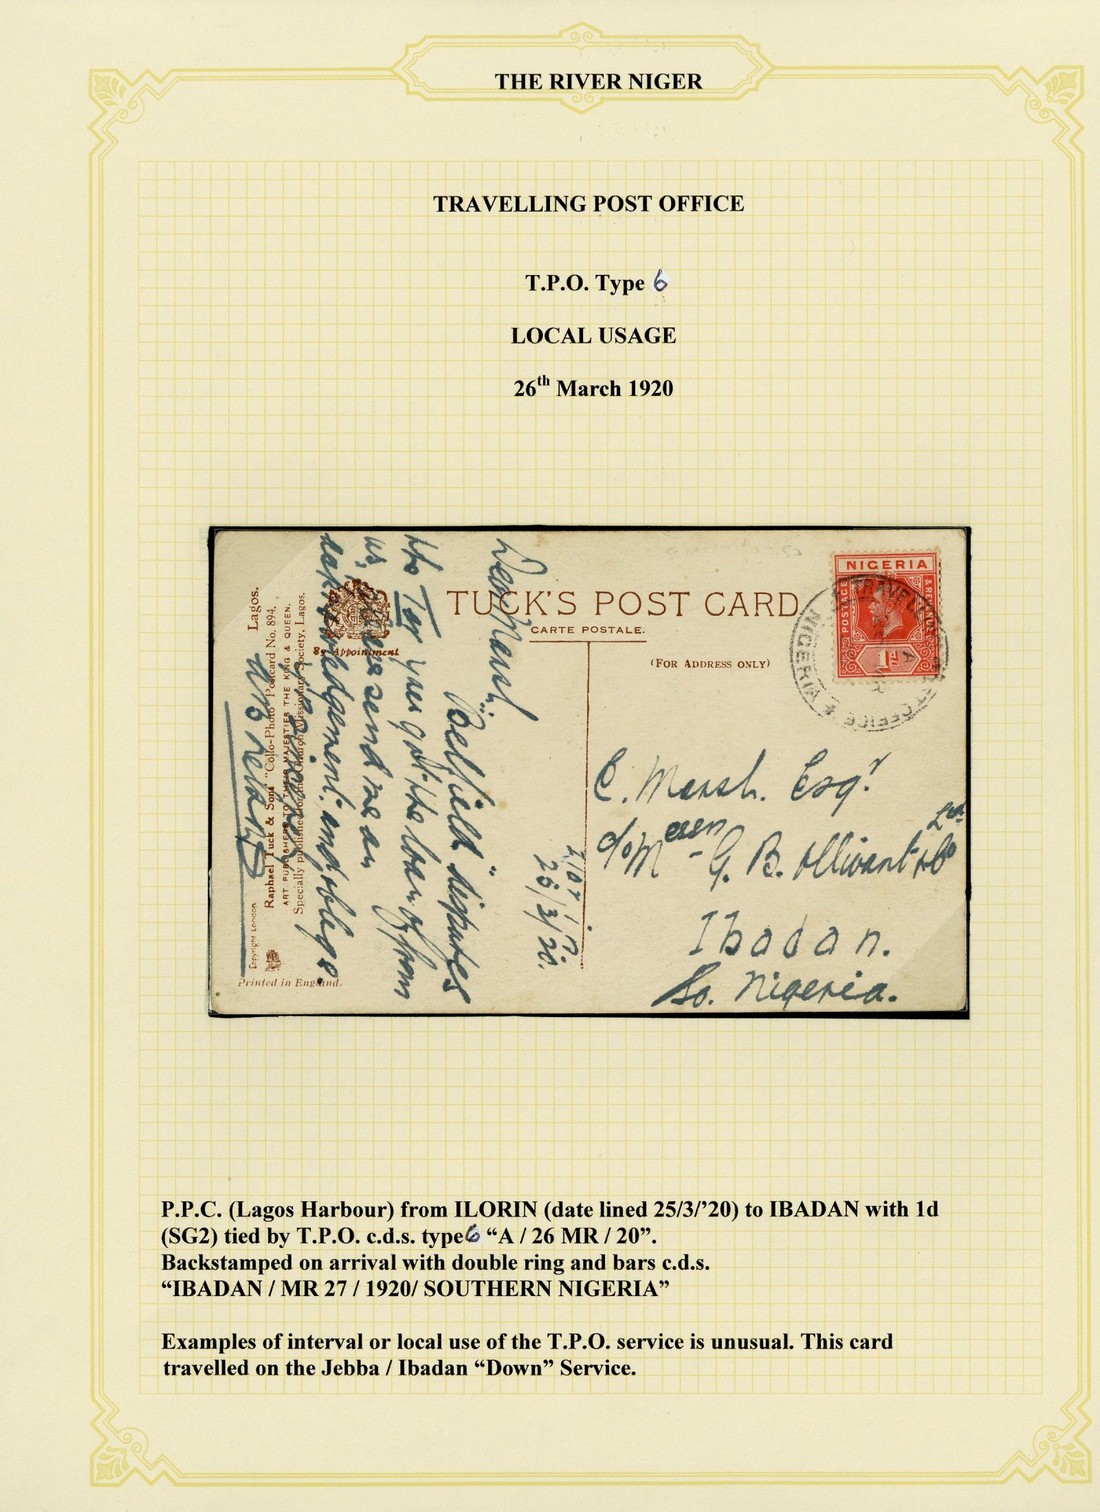 THE RIVER NIGER
TRAVELLING POST OFFICE
T.P.O. Type 6
LOCAL USAGE
26th March 1920
TUCK'S POST CARD
CARTE POSTALE.
(FOR ADDRESS ONLY)
NIGERIA
POSTAGE
& REVENUE
1d
TRAVELL
OFFICE
NIGERIA
A
MR
C. Marsh. Esqr
c/o Messrs G. B. Ollivant & Co Ltd
Ibadan.
So. Nigeria.
25/3/20.
Dear Marsh,
"Belfield" disputes
the Tor you got the loan of from
us, please send me an
acknowledgement, and oblige
By Appointment
Lagos.
Raphael Tuck & Sons' "Collo-Photo" Postcard No. 894.
ART PUBLISHERS TO THEIR MAJESTIES THE KING & QUEEN.
Specially published for the Church Missionary Society, Lagos.
Copyright London
Printed in England.
P.P.C. (Lagos Harbour) from ILORIN (date lined 25/3/'20) to IBADAN with 1d
(SG2) tied by T.P.O. c.d.s. type 6 “A / 26 MR / 20”.
Backstamped on arrival with double ring and bars c.d.s.
“IBADAN / MR 27 / 1920/ SOUTHERN NIGERIA”
Examples of interval or local use of the T.P.O. service is unusual. This card
travelled on the Jebba / Ibadan “Down” Service.